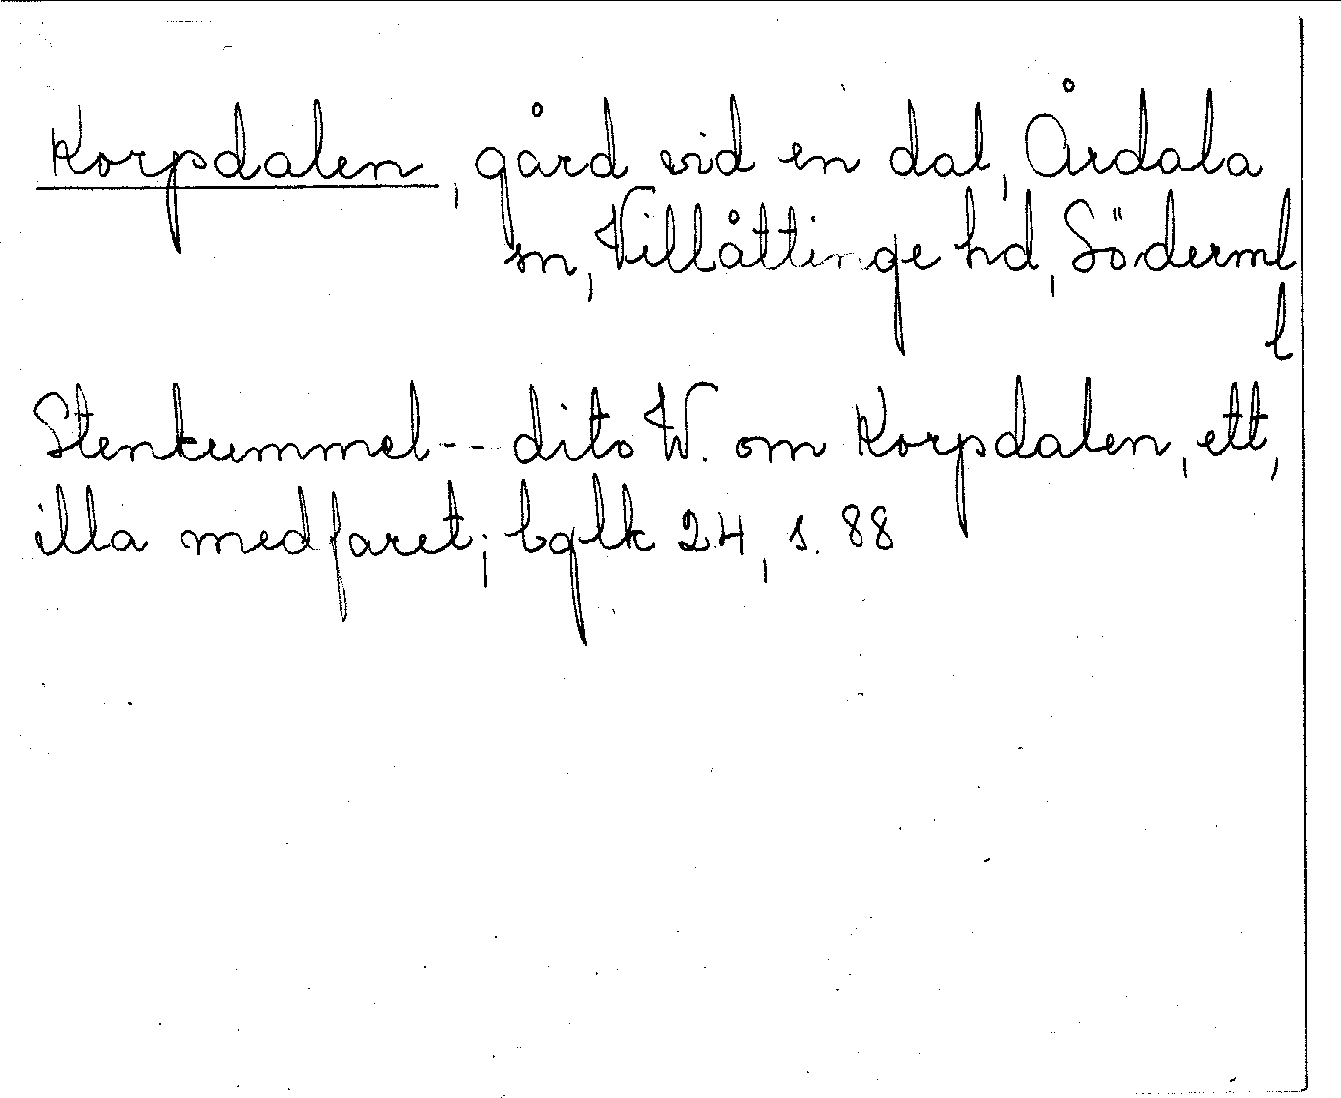 Korpdalen, gård vid en dal, Årdala
sn, Villåttinge hd, Söderml
l
Stenkummel -- dito W. om Korpdalen, ett,
illa medfaret; bglk 24, s. 88